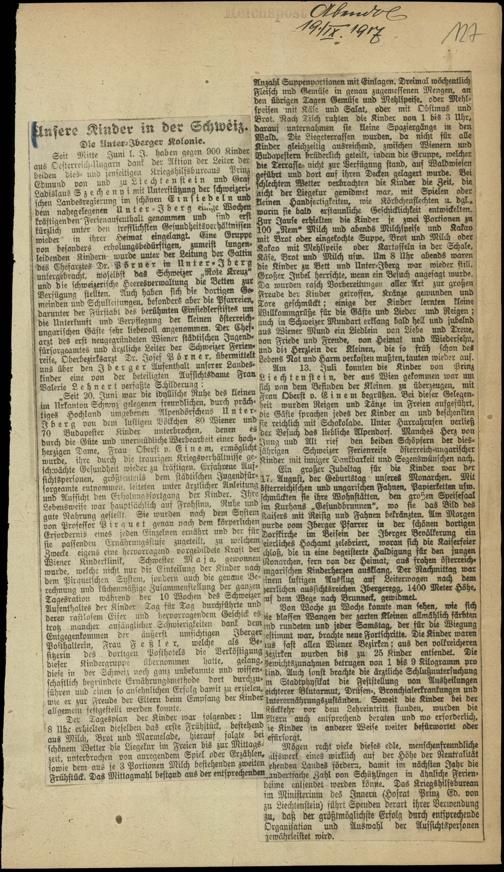 Reichspost
Abendbl.
19/IX. 1917
127
Unsere Kinder in der Schweiz.
Die Unter-Iberger Kolonie.
Seit Mitte Juni l. J. haben gegen 900 Kinder
aus Oesterreich-Ungarn dank der Aktion der Leiter der
beiden dies- und jenseitigen Kriegshilfsbureaus Prinz
Edmund von und zu Liechtenstein und Graf
Ladislaus Szechenyi mit Unterstützung der schweizeri-
schen Landesregierung im schönen Einsiedeln und
dem nahegelegenen Unter-Iberg Wochen
kräftigenden Ferienaufenthalt genommen und sind erst
kürzlich unter den trefflichsten Gesundheitsverhältnissen
wieder in ihrer Heimat eingelangt. Eine Gruppe
von besonders erholungsbedürftigen, zumeist lungen-
leidenden Kindern wurde unter der Leitung der Gattin
des Chefarztes Dr. Pörner in Unter-Iberg
untergebracht, wobei das Schweizer „Rote Kreuz“
und die schweizerische Heeresverwaltung die Betten zur
Verfügung stellten. Auch haben sich die dortigen Ge-
meinden und Schulleitungen, besonders aber die Pfarreien,
darunter der Fürstabt des berühmten Einsiedlerstiftes um
die Unterkunft und Verpflegung der kleinen österreich-
ungarischen Gäste sehr liebevoll angenommen. Der Chef-
arzt des erst neugegründeten Wiener städtischen Jugend-
fürsorgeamts und ärztliche Leiter der Schweizer Ferien-
kolonie, Oberbezirksarzt Dr. Josef Pörner, übermittelt
uns über den Iberger Aufenthalt unserer Landes-
kinder eine von der beteiligten Aufsichtsdame Frau
Valerie Lehner verfaßte Schilderung:
„Seit 20. Juni war die idyllische Ruhe des kleinen
im Urkanton Schwyz gelegenen freundlichen, durch präch-
tiges Hochland umgebenen Alpendörfchens Unter-
Iberg von dem lustigen Völkchen 80 Wiener und
70 Budapester Kinder unterbrochen, denen es
durch die Güte und unermüdliche Werbearbeit einer hoch-
herzigen Dame, Frau Oberst v. Einem, ermöglicht
wurde, ihre durch die traurigen Kriegsverhältnisse ge-
schwächte Gesundheit wieder zu kräftigen. Erfahrene Auf-
sichtspersonen, größtenteils dem städtischen Jugendfür-
sorgeamte entnommen, leiteten unter ärztlicher Anleitung
und Aufsicht den Erholungsfortgang der Kinder. Ihre
Lebensweise war hauptsächlich auf Frohsinn, Ruhe und
gute Nahrung gestellt. Sie wurden nach dem System
von Professor Pirquet genau nach dem körperlichen
Erfordernis eines jeden Einzelnen erwogen und der für
sie passenden Ernährungsstufe zugeteilt, zu welchem
Zwecke eigens eine hervorragend vorgebildete Kraft der
Wiener Kinderklinik, Schwester Maja, gewonnen
wurde, welche nicht nur die Einteilung der Kinder nach
dem Pirquetschen System, sondern auch die genaue Be-
rechnung und küchenmäßige Zusammenstellung der ganzen
Tagesration während der 10 Wochen des Schweizer
Aufenthaltes der Kinder Tag für Tag durchführte und
deren rastlosem Eifer und hervorragendem Geschick es
trotz mancher anfänglicher Schwierigkeiten dank dem
Entgegenkommen der äußerst umsichtigen Iberger
Posthalterin, Frau Feßler, welche als Be-
sitzerin des dortigen Posthotels die Verköstigung
dieser Kindergruppe übernommen hatte, gelang,
diese in der Schweiz noch ganz unbekannte und wissen-
schaftlich begründete Ernährungsmethode dort durchzu-
führen und einen so ansehnlichen Erfolg damit zu erzielen,
wie er zur Freude der Eltern beim Empfang der Kinder
allgemein festgestellt werden konnte.
Der Tagesplan der Kinder war folgender: Um
8 Uhr erhielten dieselben das erste Frühstück, bestehend
aus Milch, Brot und Marmelade, hierauf folgte bei
schönem Wetter die Liegekur im Freien bis zur Mittags-
zeit, unterbrochen von anregendem Spiel oder Erzählen,
sowie dem aus je 3 Portionen Milch bestehenden zweiten
Frühstück. Das Mittagmahl bestand aus der entsprechenden
Anzahl Suppenportionen mit Einlagen. Dreimal wöchentlich
Fleisch und Gemüse in genau zugemessenen Mengen, an
den übrigen Tagen Gemüse und Mehlspeise, oder Mehl-
speisen mit Käse und Salat, oder mit Obstmus und
Brot. Nach Tisch ruhten die Kinder von 1 bis 3 Uhr,
darauf unternahmen sie kleine Spaziergänge in den
Wald. Die Liegeterrassen wurden, da nicht für alle
Kinder gleichzeitig ausreichend, zwischen Wienern und
Budapestern brüderlich geteilt, indem die Gruppe, welcher
die Terrasse nicht zur Verfügung stand, auf Waldwiesen
geführt und dort auf ihren Decken gelagert wurde. Bei
schlechtem Wetter verbrachten die Kinder die Zeit, die
nicht der Liegekur gewidmet war, mit Spielen oder
kleinen Handfertigkeiten, wie Körbchenflechten u. dgl.,
worin sie bald erstaunliche Geschicklichkeit entwickelten.
Zur Jause erhielten die Kinder je zwei Portionen zu
100 „Nem“ Milch und abends Milchspeise und Kakao
mit Brot oder eingekochte Suppe, Brot und Milch oder
Kakao mit Mehlspeise oder Kartoffeln in der Schale,
Käse, Brot und Milch usw. Um 8 Uhr abends waren
die Kinder zu Bett und Unter-Iberg war wieder still.
Großer Jubel herrschte, wenn ein Besuch angesagt wurde.
Da wurden rasch Vorbereitungen aller Art zur großen
Freude der Kinder getroffen, Kränze gewunden und
Tore geschmückt; einige der Kinder lernten kleine
Willkommgrüße für die Gäste und Lieder und Reigen;
auch in Schweizer Mundart erklang bald hell und jubelnd
aus Wiener Mund ein Liedlein von Liebe und Treue,
von Friede und Freude, von Heimat und Wiedersehn,
und die Herzlein der Kleinen, die so früh schon des
Lebens Not und Harm verkosten mußten, tauten wieder auf.
Am 13. Juli konnten die Kinder von Prinz
Liechtenstein, der aus Wien gekommen war um
sich von dem Befinden der Kleinen zu überzeugen, mit
Frau Oberst v. Einem begrüßen. Bei dieser Gelegen-
heit wurden Reigen und Tänze im Freien aufgeführt,
die Gäste sprachen jedes der Kinder an und beschenkten
sie reichlich mit Schokolade. Unter Hurrarufen verließ
der Besuch das liebliche Alpendorf. Manches Herz von
Jung und Alt rief den beiden Schöpfern der dies-
jährigen Schweizer Ferienreise österreich-ungarischer
Kinder mit inniger Dankbarkeit und Segenswünschen nach.
Ein großer Jubeltag für die Kinder war der
17. August, der Geburtstag unseres Monarchen. Mit
österreichischen und ungarischen Fahnen, Papierketten usw.
schmückten sie ihre Wohnstätten, den großen Speisesaal
im Kurhaus „Gesundbrunnen“, wo sie das Bild des
Kaisers mit Reisig und Fahnen bekränzten. Am Morgen
wurde vom Iberger Pfarrer in der schönen dortigen
Dorfkirche im Beisein der Iberger Bevölkerung ein
feierliches Hochamt zelebriert, woran sich die Kaiserfeier
schloß, die in eine begeisterte Huldigung für den jungen
Monarchen, fern von der Heimat, aus frohen österreich-
ungarischen Kinderherzen ausklang. Der Nachmittag war
einem lustigen Ausflug auf Leiterwagen nach dem
herrlichen aussichtsreichen Ibergeregg, 1400 Meter Höhe,
auf dem Wege nach Brunneck, gewidmet.
Von Woche zu Woche konnte man sehen, wie sich
die blassen Wangen der zarten Kleinen allmählich färbten
und rundeten und jeder Samstag, der für die Wiegung
bestimmt war, brachte neue Fortschritte. Die Kinder waren
aus fast allen Wiener Bezirken; aus den volkreicheren
Bezirken wurden bis zu 25 Kinder entsendet. Die
Gewichtszunahmen betrugen von 1 bis 9 Kilogramm pro
Kind. Auch sonst brachte die ärztliche Schlußuntersuchung
im Stadtphysikat die Feststellung von Ausheilungen
leichterer Blutarmut, Drüsen-, Bronchialerkrankungen und
Unterernährungszuständen. Soweit die Kinder bei der
Rückkehr vor dem Lehreintritt standen, wurden die
Eltern auch entsprechend beraten und wo erforderlich,
die Kinder in anderer Weise weiter befürwortet oder
befürsorgt.
Mögen recht viele dieses edle, menschenfreundliche
Hilfswerk eines wirklich auf der Höhe der Neutralität
stehenden Landes fördern, damit im nächsten Jahr die
hundertfache Zahl von Schützlingen in ähnliche Ferien-
heime entsendet werden könne. Das Kriegshilfsbureau
im Ministerium des Innern (Hofrat Prinz Ed. von
zu Liechtenstein) führt Spenden derart ihrer Verwendung
zu, daß der größtmöglichste Erfolg durch entsprechende
Organisation und Auswahl der Aufsichtspersonen
gewährleistet wird.